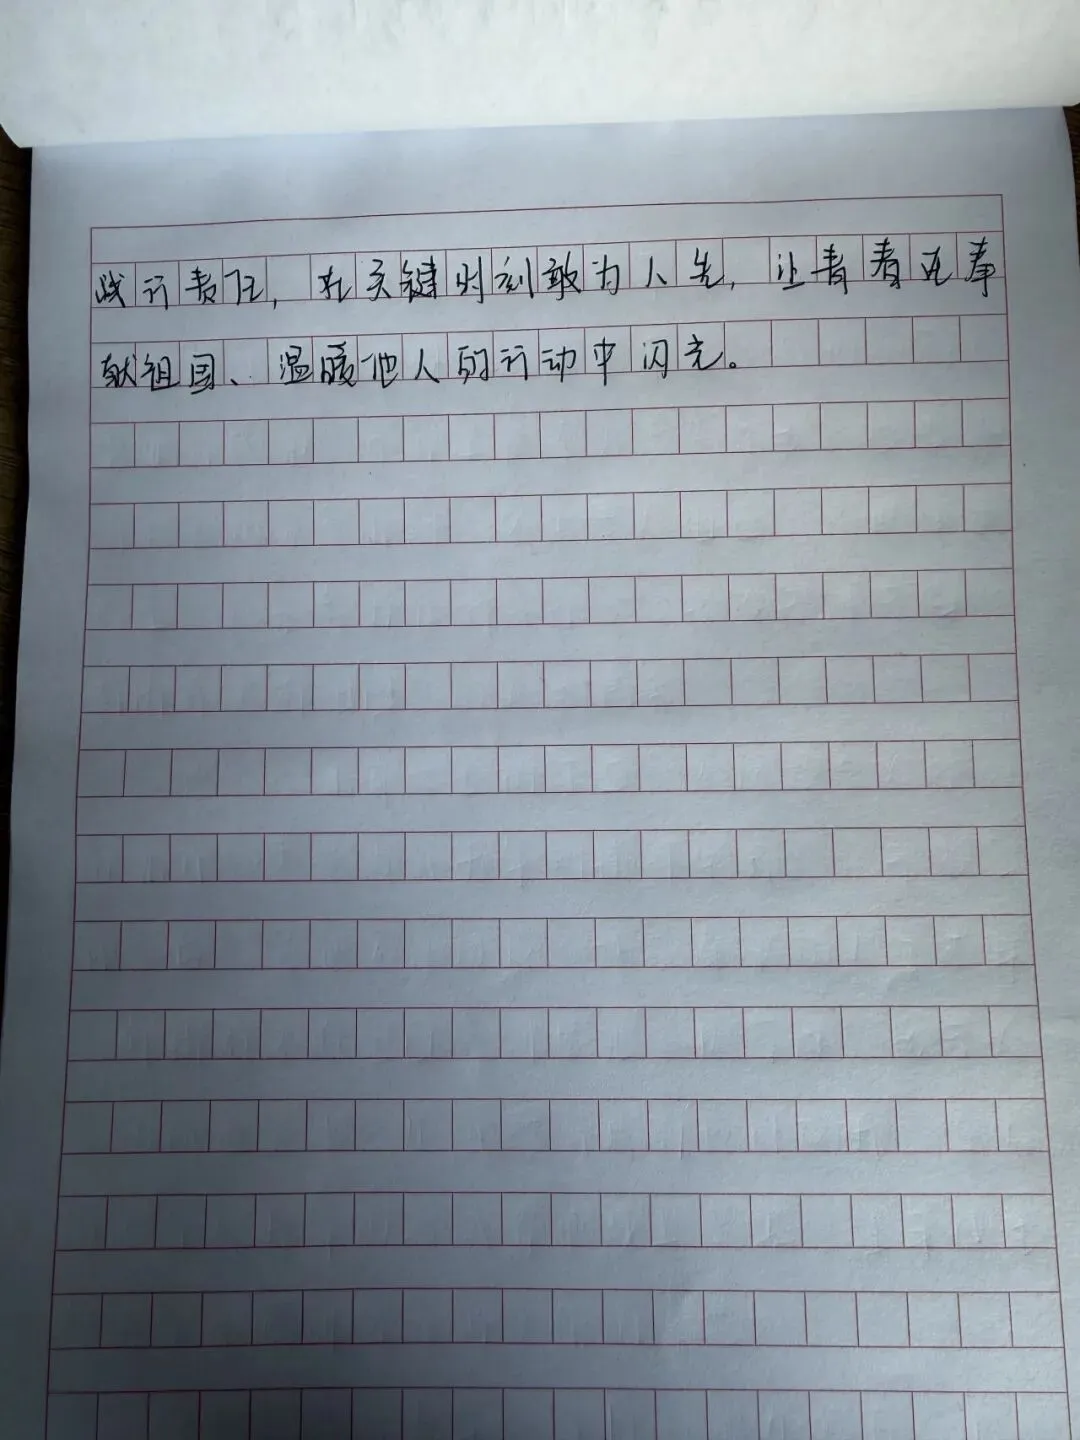 践行责任，在关键时刻敢为人先，让青春在奉
献祖国、温暖他人的行动中闪光。